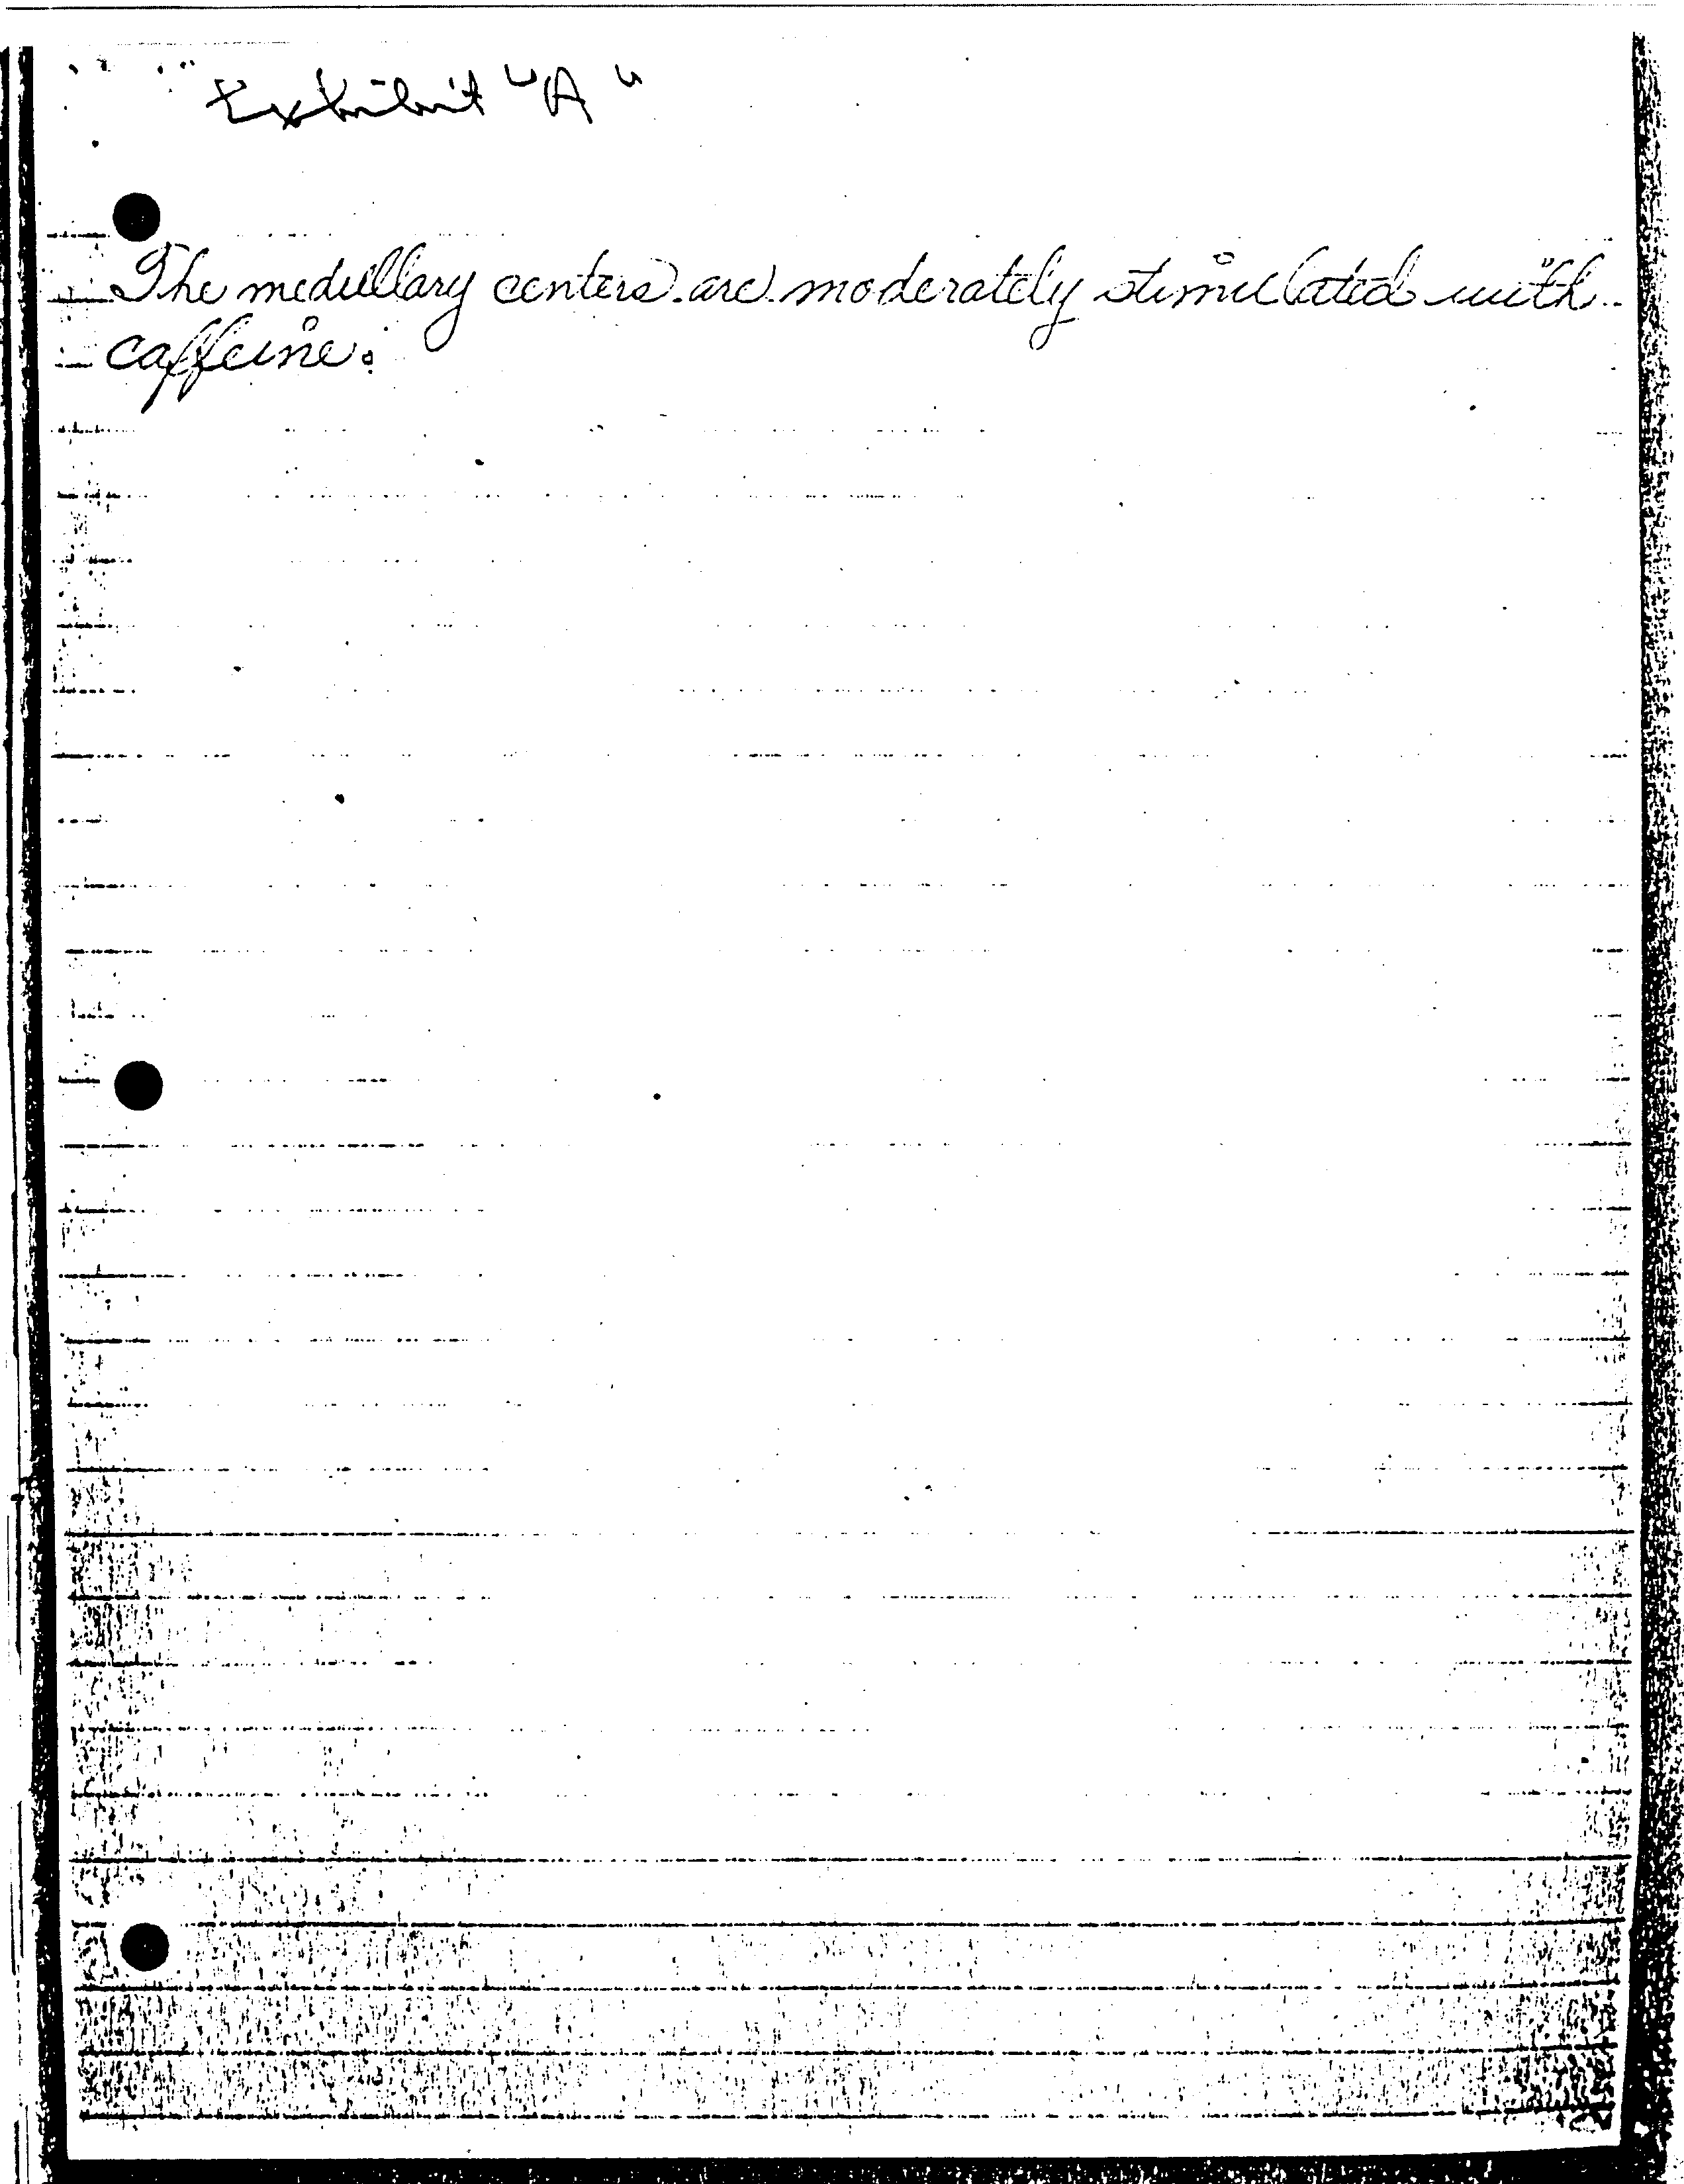 Exhibit "A"
The medullary centers are moderately stimulated with
caffeine.